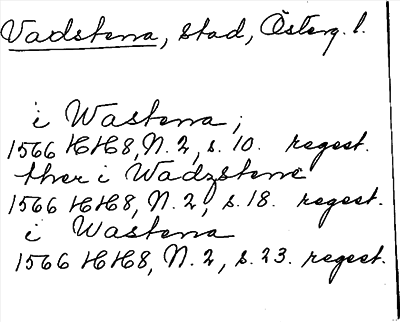 Vadstena, stad, Österg. l.
i Wastena;
1566 HH8, N. 2, s. 10. regest.
ther i Wadzstene
1566 HH8, N. 2, s. 18. regest.
i Wastena
1566 HH8, N. 2, s. 23. regest.